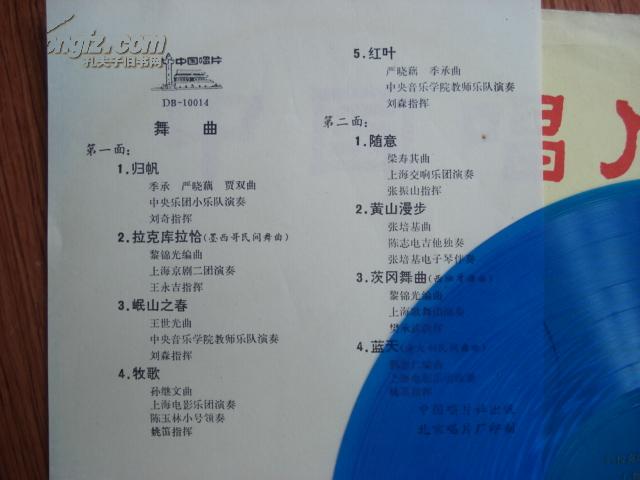 中国唱片
DB-10014
舞 曲
第一面：
1.归帆
季承 严晓藕 贾双曲
中央乐团小乐队演奏
刘奇指挥
2.拉克库拉恰(墨西哥民间舞曲)
黎锦光编曲
上海京剧二团演奏
王永吉指挥
3.岷山之春
王世光曲
中央音乐学院教师乐队演奏
刘森指挥
4.牧歌
孙继文曲
上海电影乐团演奏
陈玉林小号领奏
姚笛指挥
5.红叶
严晓藕 季承曲
中央音乐学院教师乐队演奏
刘森指挥
第二面：
1.随意
梁寿其曲
上海交响乐团演奏
张振山指挥
2.黄山漫步
张培基曲
陈志电吉他独奏
张培基电子琴伴奏
3.茨冈舞曲(西班牙舞曲)
黎锦光编曲
上海歌舞团演奏
樊承武指挥
4.蓝天(意大利民间舞曲)
编曲
上海电影乐团演奏
姚笛指挥
中国唱片社出版
北京唱片厂印制
唱片
kongfz.com
孔夫子旧书网